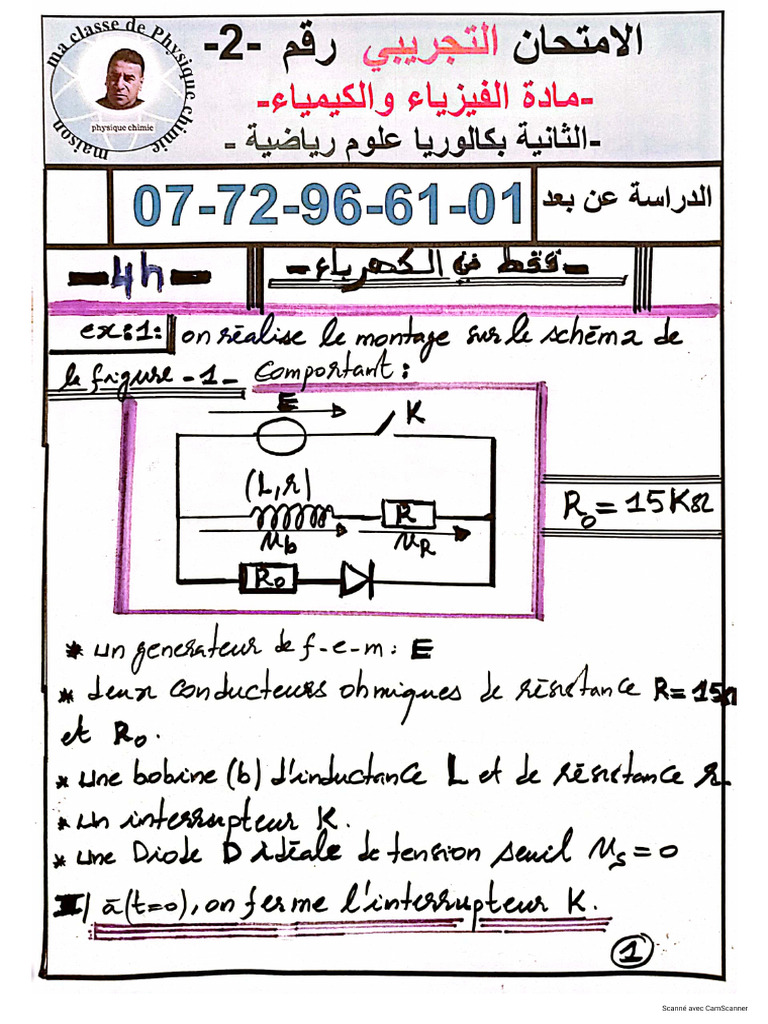 ma classe de Physique chimie
maison
physique chimie
الامتحان التجريبي رقم -2-
-مادة الفيزياء والكيمياء-
-الثانية بكالوريا علوم رياضية -
07-72-96-61-01 الدراسة عن بعد
-4h- -فقط في الكهرباء-
ex:1: on réalise le montage sur le schéma de
la figure -1- Comportant:
E
K
(L,r)
R
R₀ = 15KΩ
u_b
u_R
R₀
* un generateur de f-e-m: E
* deux conducteurs ohmiques de résistance R=15Ω
et R₀.
* une bobine (b) d'inductance L et de résistance r.
* un interrupteur K.
* une Diode D idéale de tension seuil u_s=0
I/ à (t=0), on ferme l'interrupteur K.
1
Scanné avec CamScanner